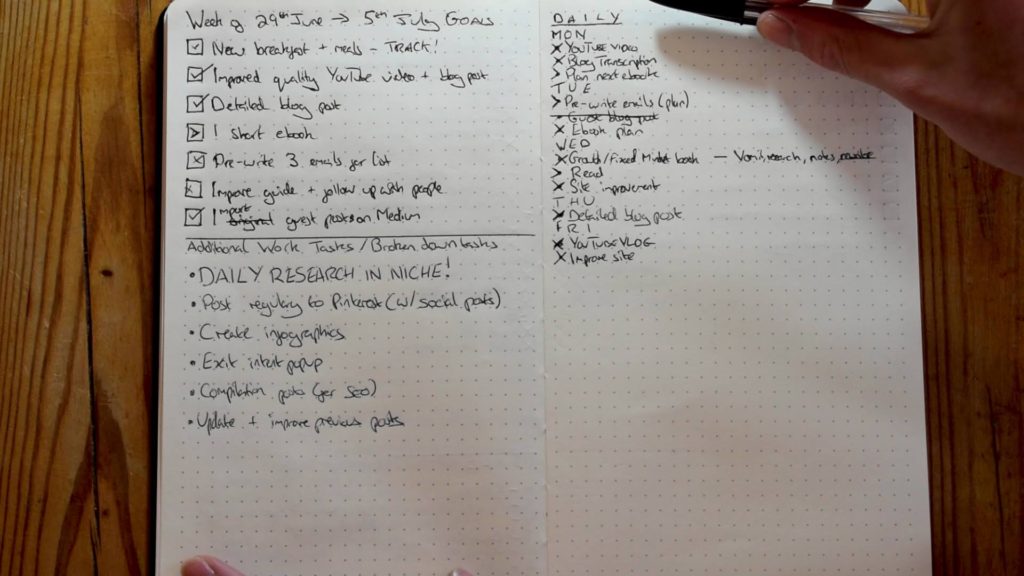 Week of 29th June → 5th July GOALS
New breakfast + meals - TRACK!
Improved quality YouTube video + blog post
Detailed blog post
1 short ebook
Pre-write 3 emails for list
Improve guide + follow up with people
1 import original guest posts on Medium
Additional Work Tasks / Broken down tasks
• DAILY RESEARCH IN NICHE!
• Post regularly to Pinterest (w/ social posts)
• Create infographics
• Exit intent popup
• Compilation posts (for SEO)
• Update + improve previous posts
DAILY
MON
X YouTube VIDEO
X Blog Transcription
> Plan next ebook
TUE
> Pre-write emails (plan)
- Guest blog post
X Ebook plan
WED
X Growth/Fixed Mindset book - Vomit, research, notes,
> Read
X Site improvement
THU
X Detailed blog post
FRI
X YouTube VLOG
X Improve site